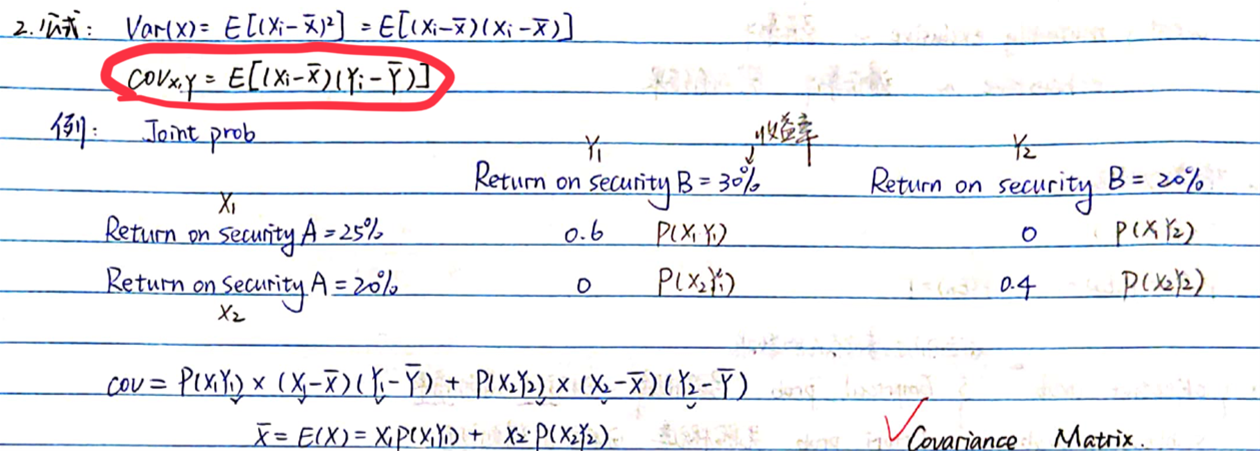 2.公式: Var(X)= E[(Xi-X̄)²] = E[(Xi-X̄)(Xi-X̄)]
COVx,Y = E[(Xi-X̄)(Yi-Ȳ)]
例: Joint prob
Y₁ 收益率 Y₂
Return on security B = 30% Return on security B = 20%
X₁
Return on security A = 25% 0.6 P(X₁Y₁) 0 P(X₁Y₂)
Return on security A = 20% 0 P(X₂Y₁) 0.4 P(X₂Y₂)
X₂
COV = P(X₁Y₁) × (X₁-X̄)(Y₁-Ȳ) + P(X₂Y₂) × (X₂-X̄)(Y₂-Ȳ)
X̄ = E(X) = X₁P(X₁Y₁) + X₂·P(X₂Y₂) ✓Covariance Matrix.